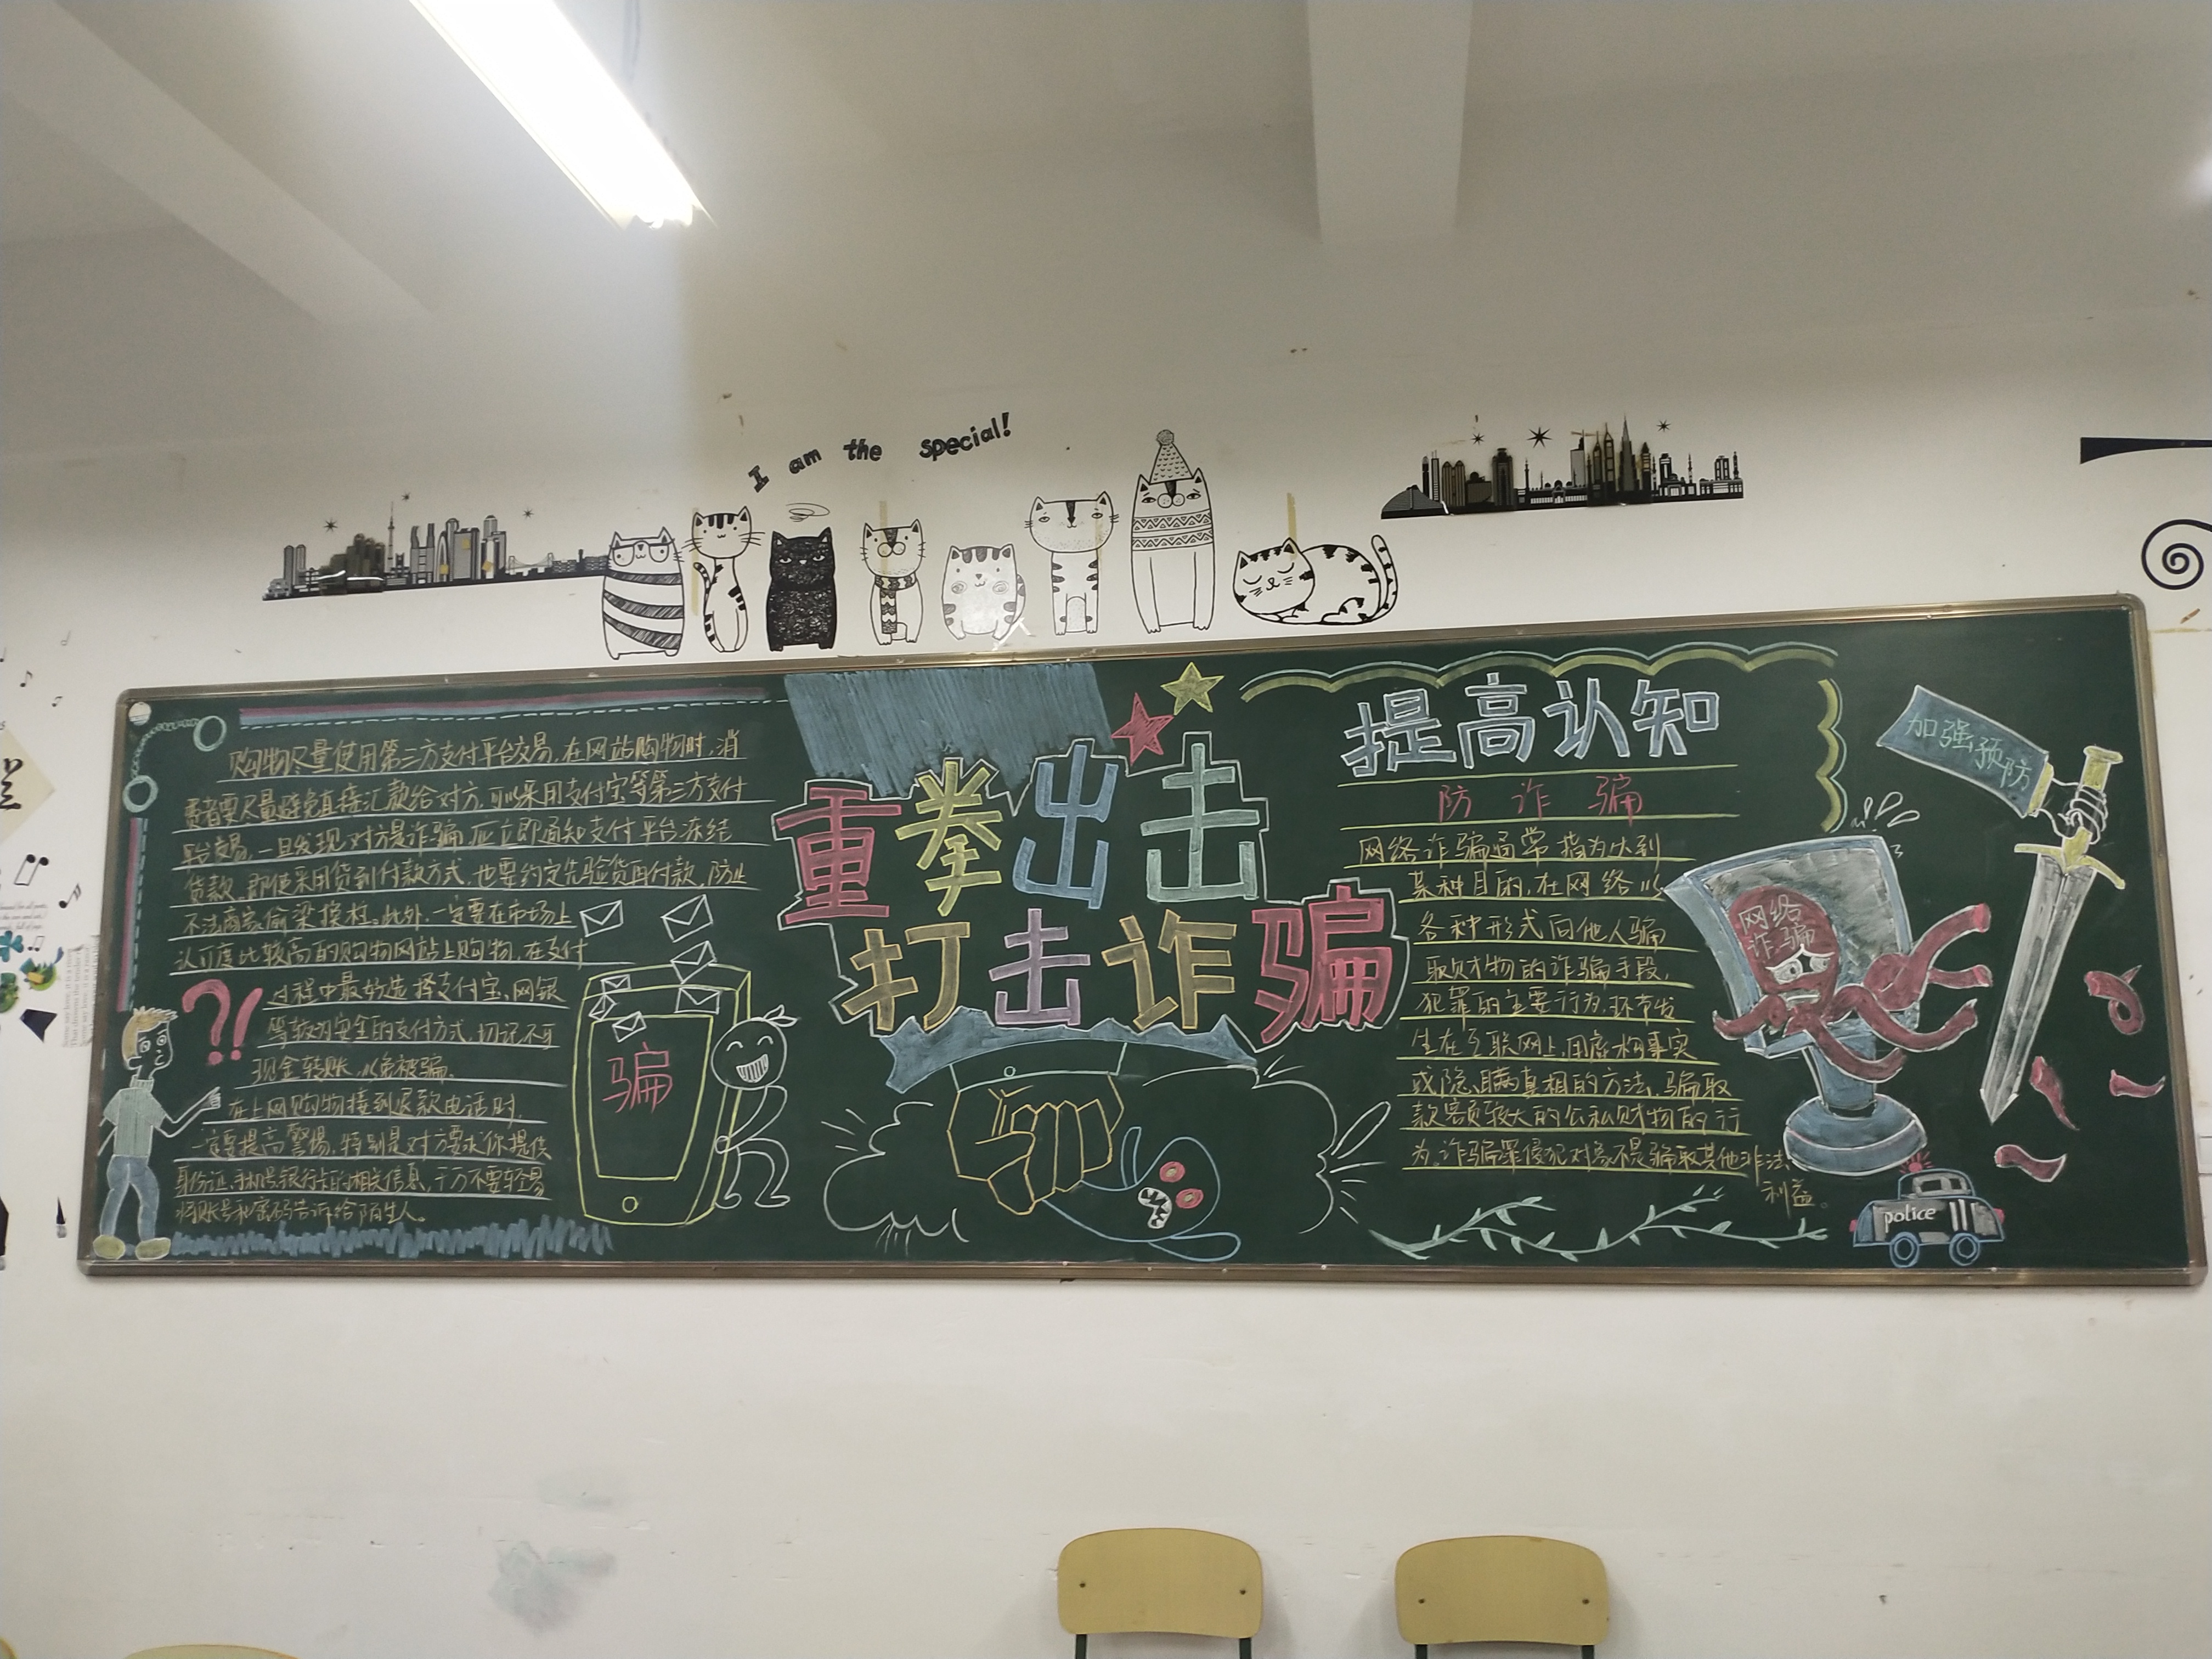 I am the special!
购物尽量使用第三方支付平台交易,在网站购物时,消
费者要尽量避免直接汇款给对方,可以采用支付宝等第三方支付
平台交易,一旦发现对方是诈骗,应立即通知支付平台冻结
货款,即使采用货到付款方式,也要约定先验货再付款,防止
不法商家偷梁换柱。此外,一定要在市场上
认可度比较高的购物网站上购物,在支付
过程中最好选择支付宝,网银
等较为安全的支付方式,切记不可
现金转账,以免被骗。
在上网购物接到退款电话时,
一定要提高警惕,特别是对方要求你提供
身份证,手机号银行卡的相关信息,千万不要轻易
将账号和密码告诉给陌生人。
?!
骗
重拳出击
打击诈骗
提高认知
防诈骗
网络诈骗通常指为达到
某种目的,在网络以
各种形式向他人骗
取财物的诈骗手段,
犯罪的主要行为,环节发
生在互联网上,用虚构事实
或隐瞒真相的方法,骗取
款额较大的公私财物的行
为。诈骗罪侵犯对象不是骗取其他非法
利益。
加强预防
网络
诈骗
police